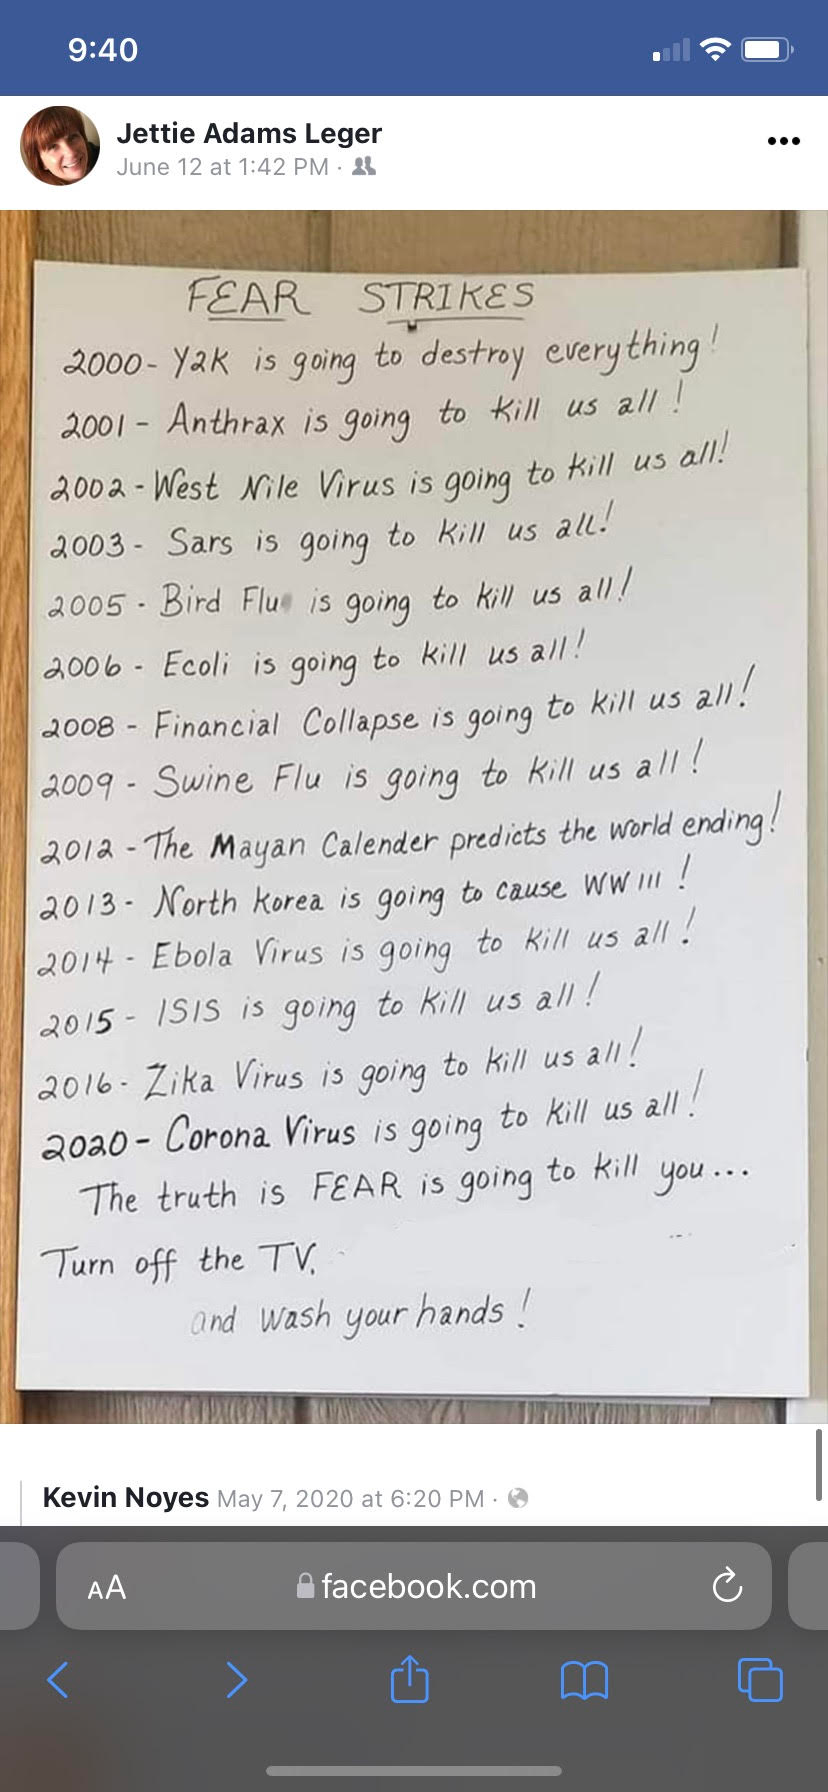 9:40
Jettie Adams Leger
June 12 at 1:42 PM ·
FEAR STRIKES
2000- Y2K is going to destroy everything!
2001 - Anthrax is going to kill us all!
2002 - West Nile Virus is going to kill us all!
2003 - Sars is going to kill us all!
2005 - Bird Flu is going to kill us all!
2006 - Ecoli is going to kill us all!
2008 - Financial Collapse is going to kill us all!
2009 - Swine Flu is going to kill us all!
2012 - The Mayan Calender predicts the world ending!
2013 - North Korea is going to cause WW III!
2014 - Ebola Virus is going to kill us all!
2015 - ISIS is going to kill us all!
2016 - Zika Virus is going to kill us all!
2020 - Corona Virus is going to kill us all!
The truth is FEAR is going to kill you...
Turn off the TV.
and wash your hands!
Kevin Noyes May 7, 2020 at 6:20 PM ·
AA facebook.com